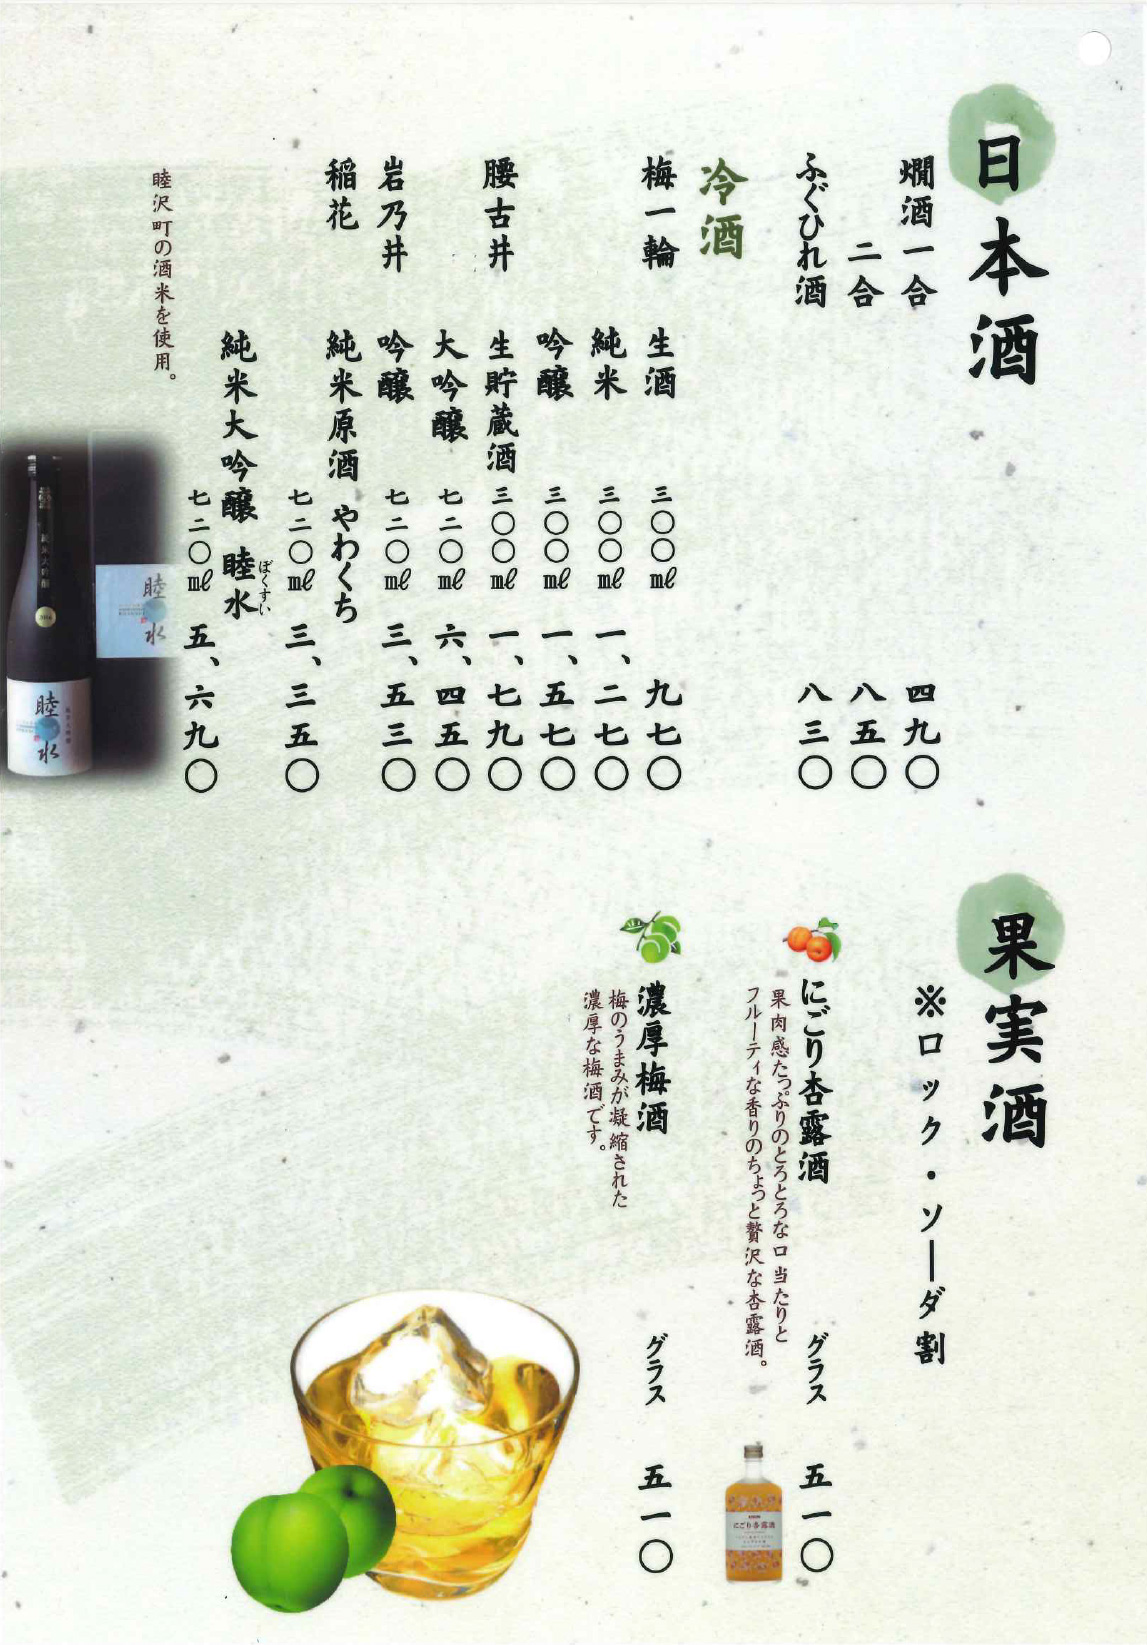 日本酒
燗酒一合 四九〇
二合 八五〇
ふぐひれ酒 八三〇
冷酒
梅一輪 生酒 三〇〇㎖ 九七〇
純米 三〇〇㎖ 一、二七〇
吟醸 三〇〇㎖ 一、五七〇
腰古井 生貯蔵酒 三〇〇㎖ 一、七九〇
大吟醸 七二〇㎖ 六、四五〇
岩乃井 吟醸 七二〇㎖ 三、五三〇
稲花 純米原酒 やわくち
七二〇㎖ 三、三五〇
純米大吟醸 睦水
ぼくすい
七二〇㎖ 五、六九〇
睦沢町の酒米を使用。
睦水
睦水
純米大吟醸
果実酒
※ロック・ソーダ割
にごり杏露酒 グラス 五一〇
果肉感たっぷりのとろとろな口当たりと
フルーティな香りのちょっと贅沢な杏露酒。
にごり杏露酒
濃厚梅酒 グラス 五一〇
梅のうまみが凝縮された
濃厚な梅酒です。